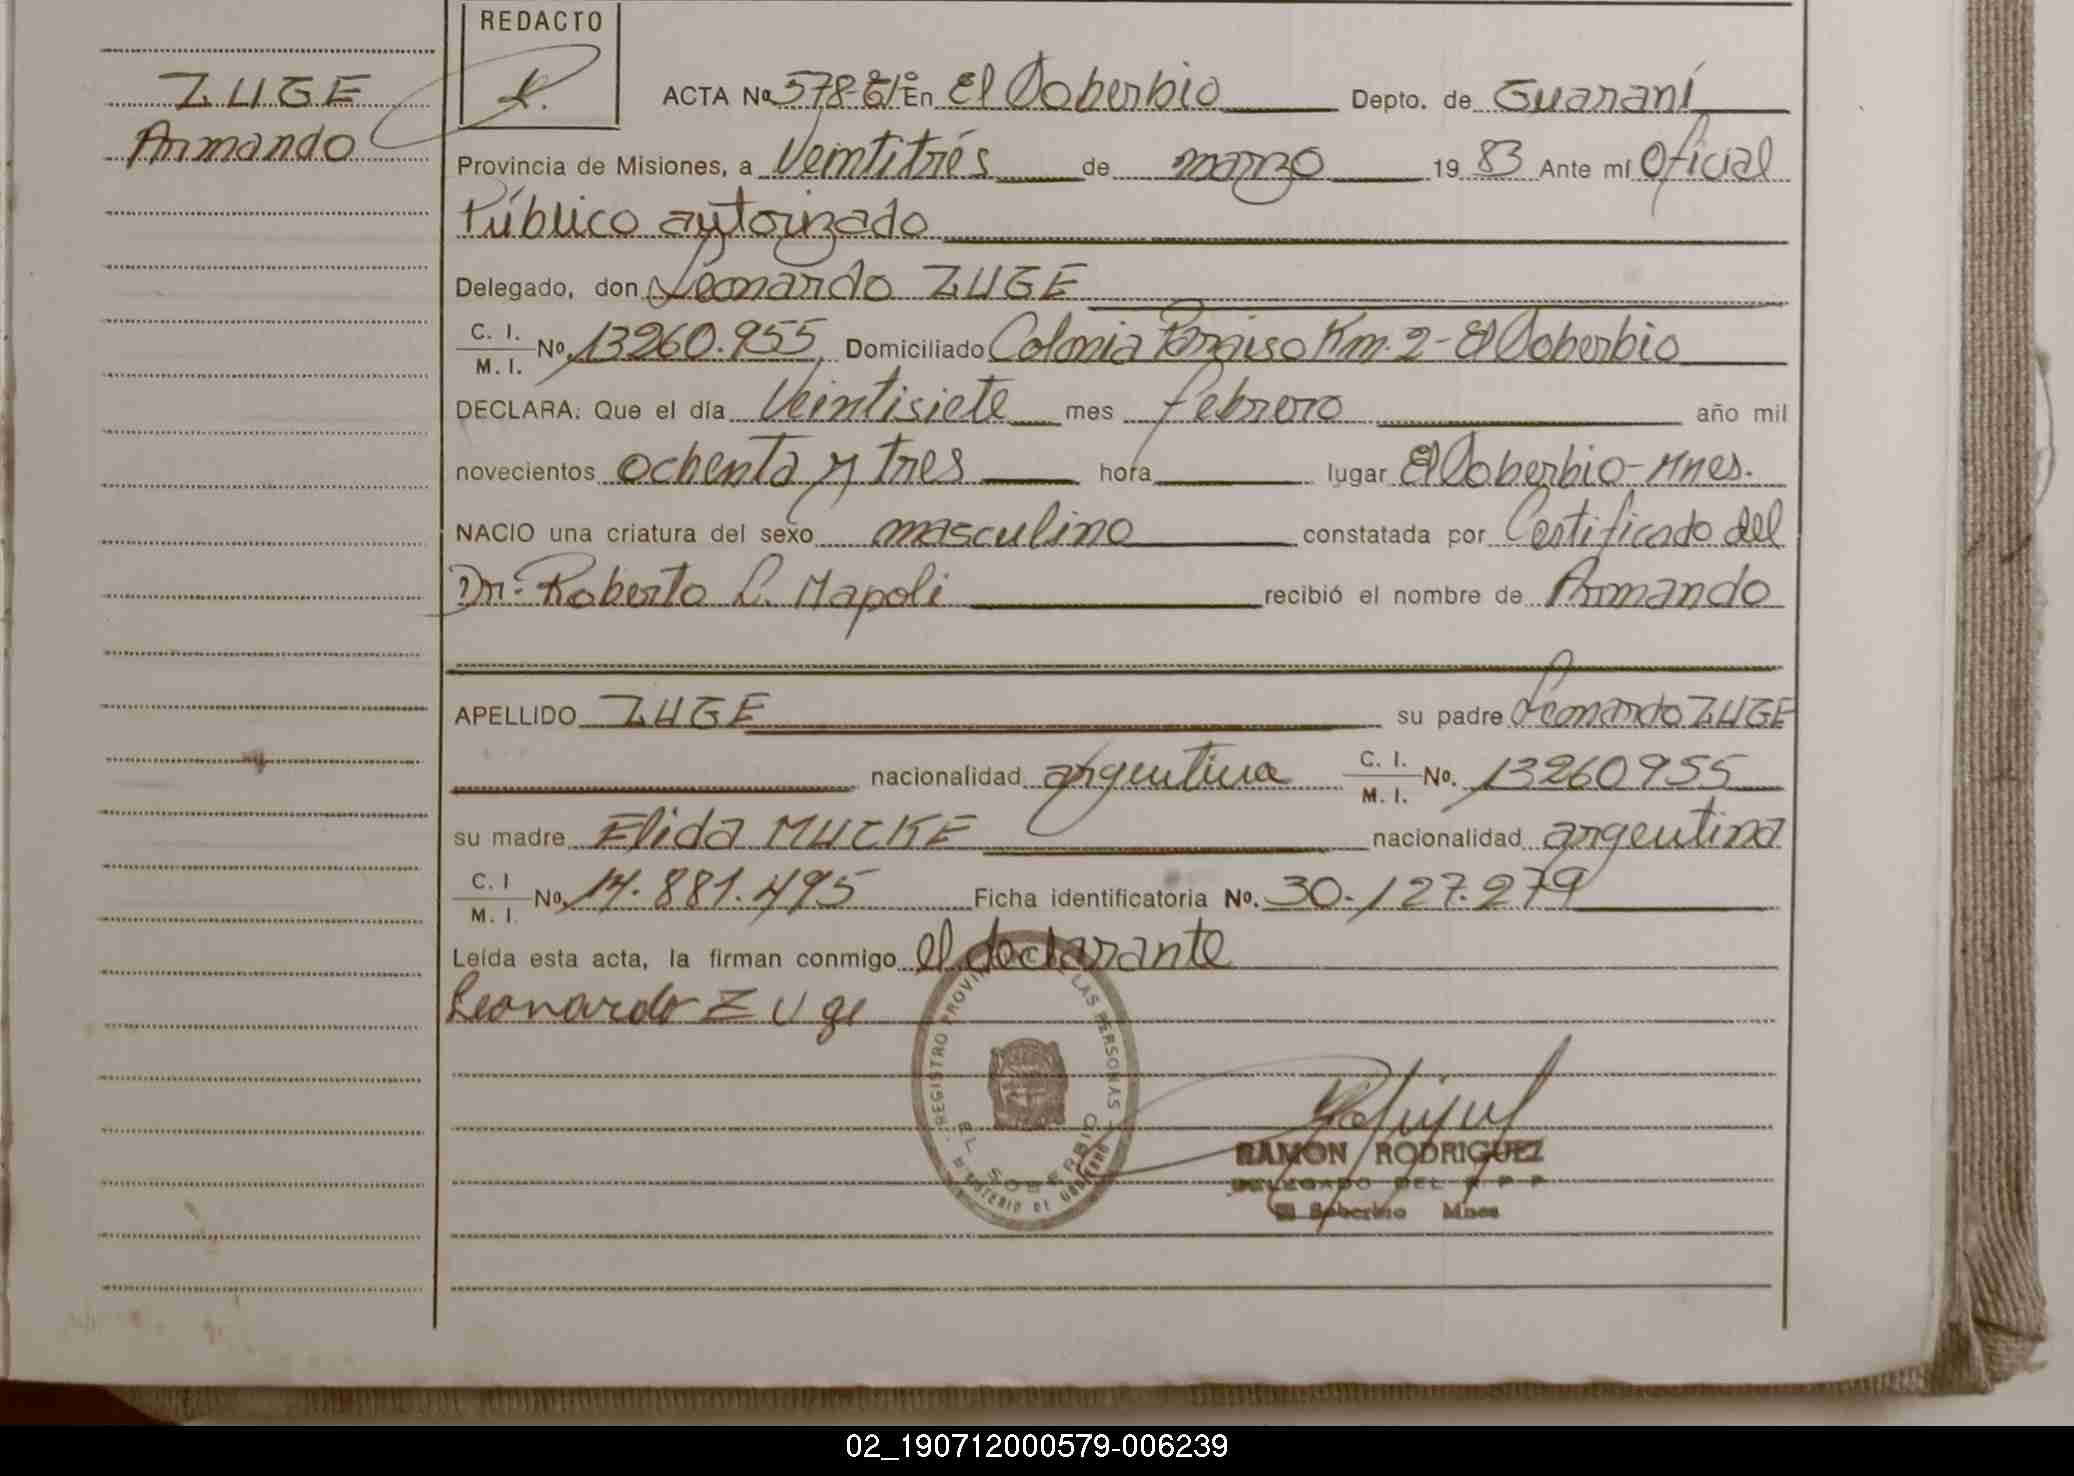 REDACTO
ZUGE
Armando
ACTA Nº 578 En El Soberbio Depto. de Guaraní
Provincia de Misiones, a Veintitrés de marzo 19 83 Ante mí Oficial
Público autorizado
Delegado, don Leonardo ZUGE
C. I. / M. I. Nº 13260.955, Domiciliado Colonia Paraiso Km. 2 - El Soberbio
DECLARA: Que el día Veintisiete mes febrero año mil
novecientos ochenta y tres hora lugar El Soberbio - Mnes.
NACIO una criatura del sexo masculino constatada por Certificado del
Dr. Roberto L. Napoli recibió el nombre de Armando
APELLIDO ZUGE su padre Leonardo ZUGE
nacionalidad argentina C. I. / M. I. Nº. 13260955
su madre Elida MUCKE nacionalidad argentina
C. I / M. I. Nº 14.881.495 Ficha identificatoria Nº. 30.127.279
Leída esta acta, la firman conmigo el declarante
Leonardo Zuge
REGISTRO PROVINCIAL LAS PERSONAS
EL SOBERBIO
MINISTERIO DE GOBIERNO
RAMON RODRIGUEZ
DELEGADO DEL R P P
El Soberbio Mnes
02_190712000579-006239